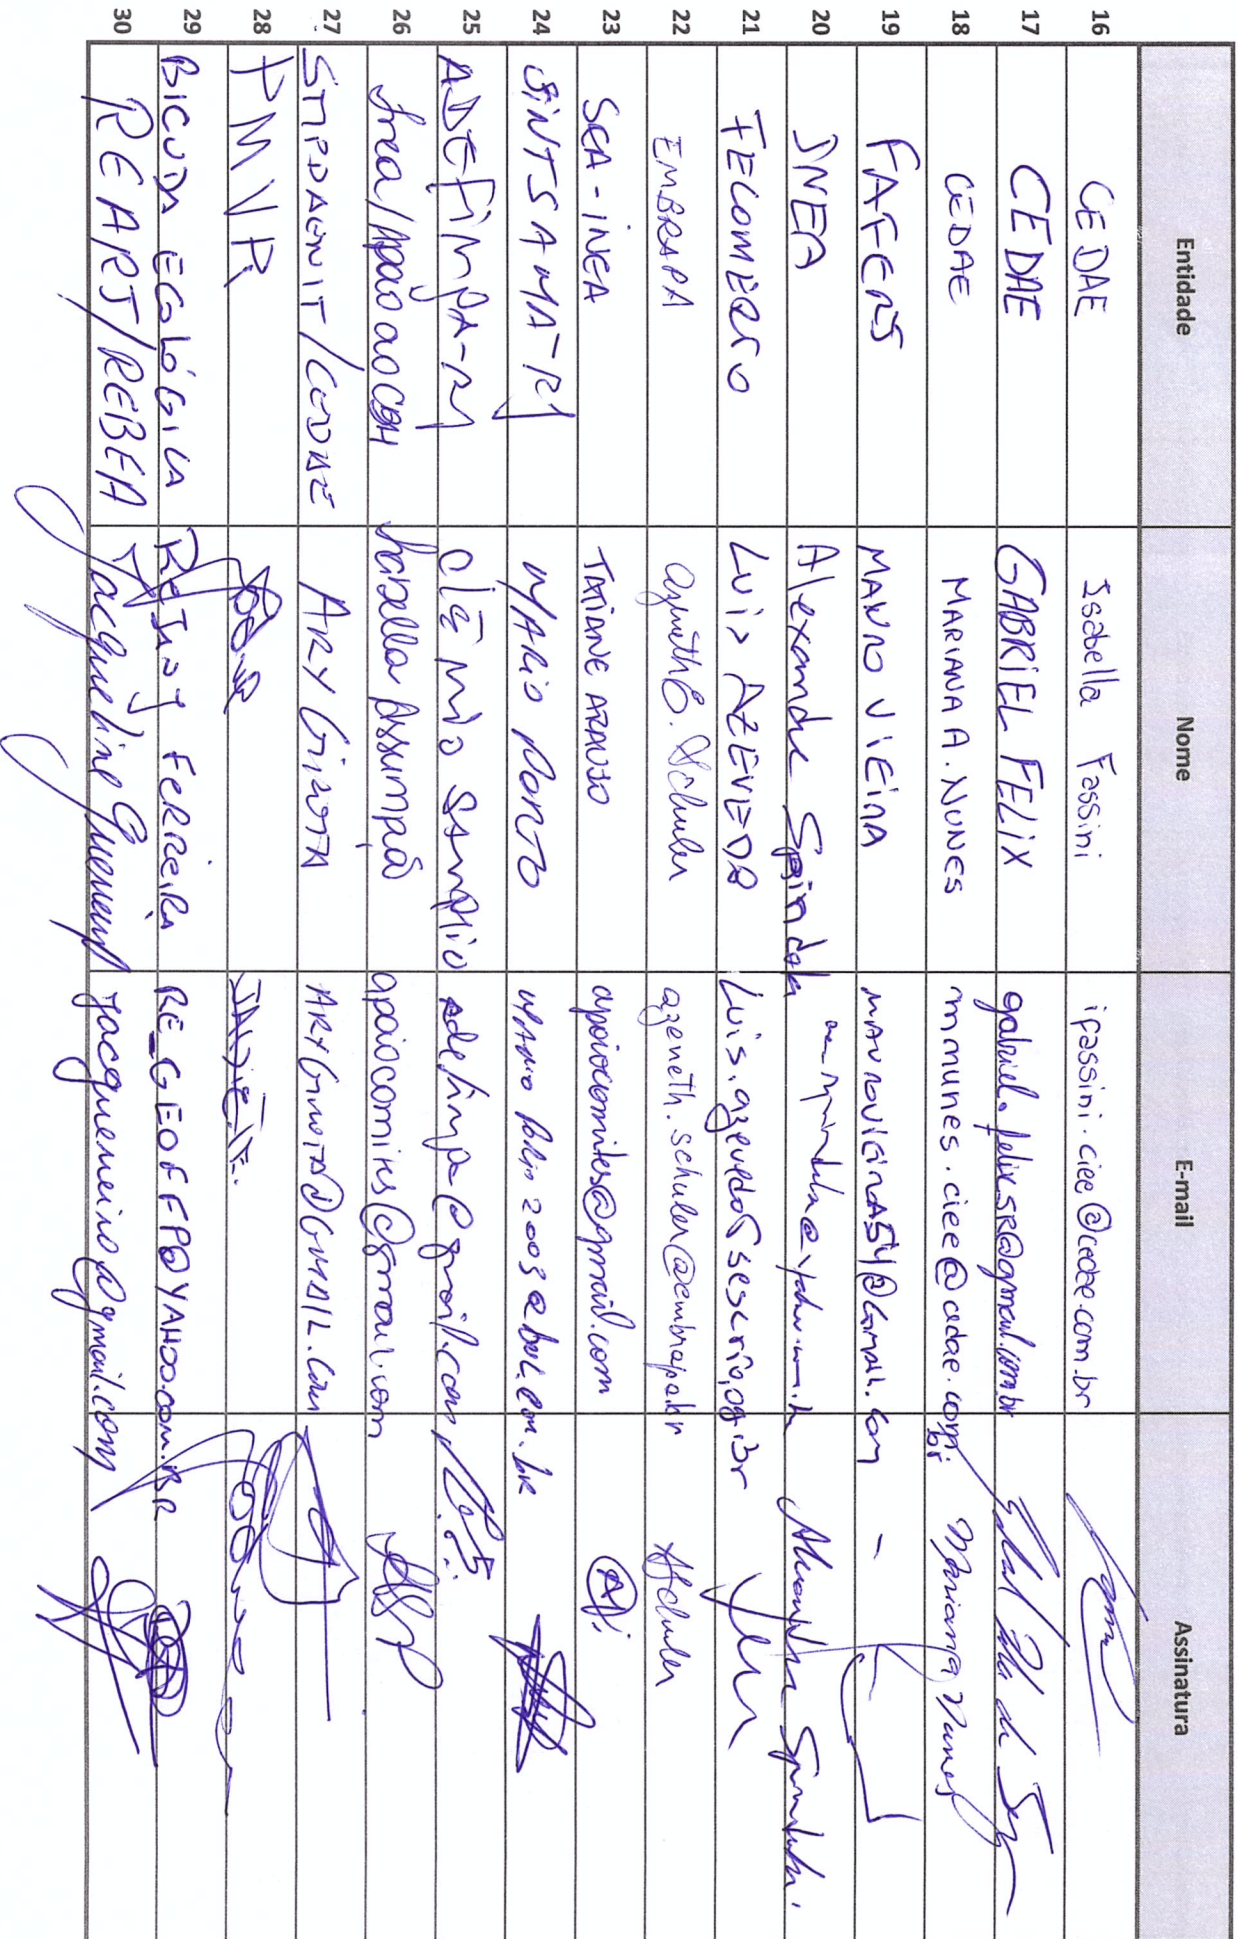 Entidade Nome E-mail Assinatura
16 CEDAE Isabella Fassini ifassini.ciee@cedae.com.br
17 CEDAE GABRIEL FELIX gabriel.felix.sr@gmail.com.br
18 CEDAE MARIANA A. NUNES mmunes.ciee@cedae.com.br Mariana Nunes
19 FAFERJ MAURO VIEIRA maurovieira454@gmail.com -
20 INEA Alexandre Spindola
21 FECOMERCIO LUIS AZEVEDO Luis.azevedo@sescrio.og.br
22 EMBRAPA Azeneth E. Schuler azeneth.schuler@embrapa.br ASchuler
23 SEA-INEA TATIANE ARAUJO apoiocomites@gmail.com
24 SINTSAMA-RJ MARIO PORTO
25 ADEFIMPA-RJ Clênio SAMPAIO adefimpa@gmail.com
26 Inea/Apoio ao CBH Assumpção apoiocomites@gmail.com
27 STIPDAENIT/CEDAE ARY GIROTA ARYGIROTA@GMAIL.COM
28 PMVR
29 BICUDA ECOLÓGICA FERREIRA RE_GEOFFP@YAHOO.COM.BR
30 REARJ/REBEA Jacqueline Guerreiro jacguerreiro@gmail.com